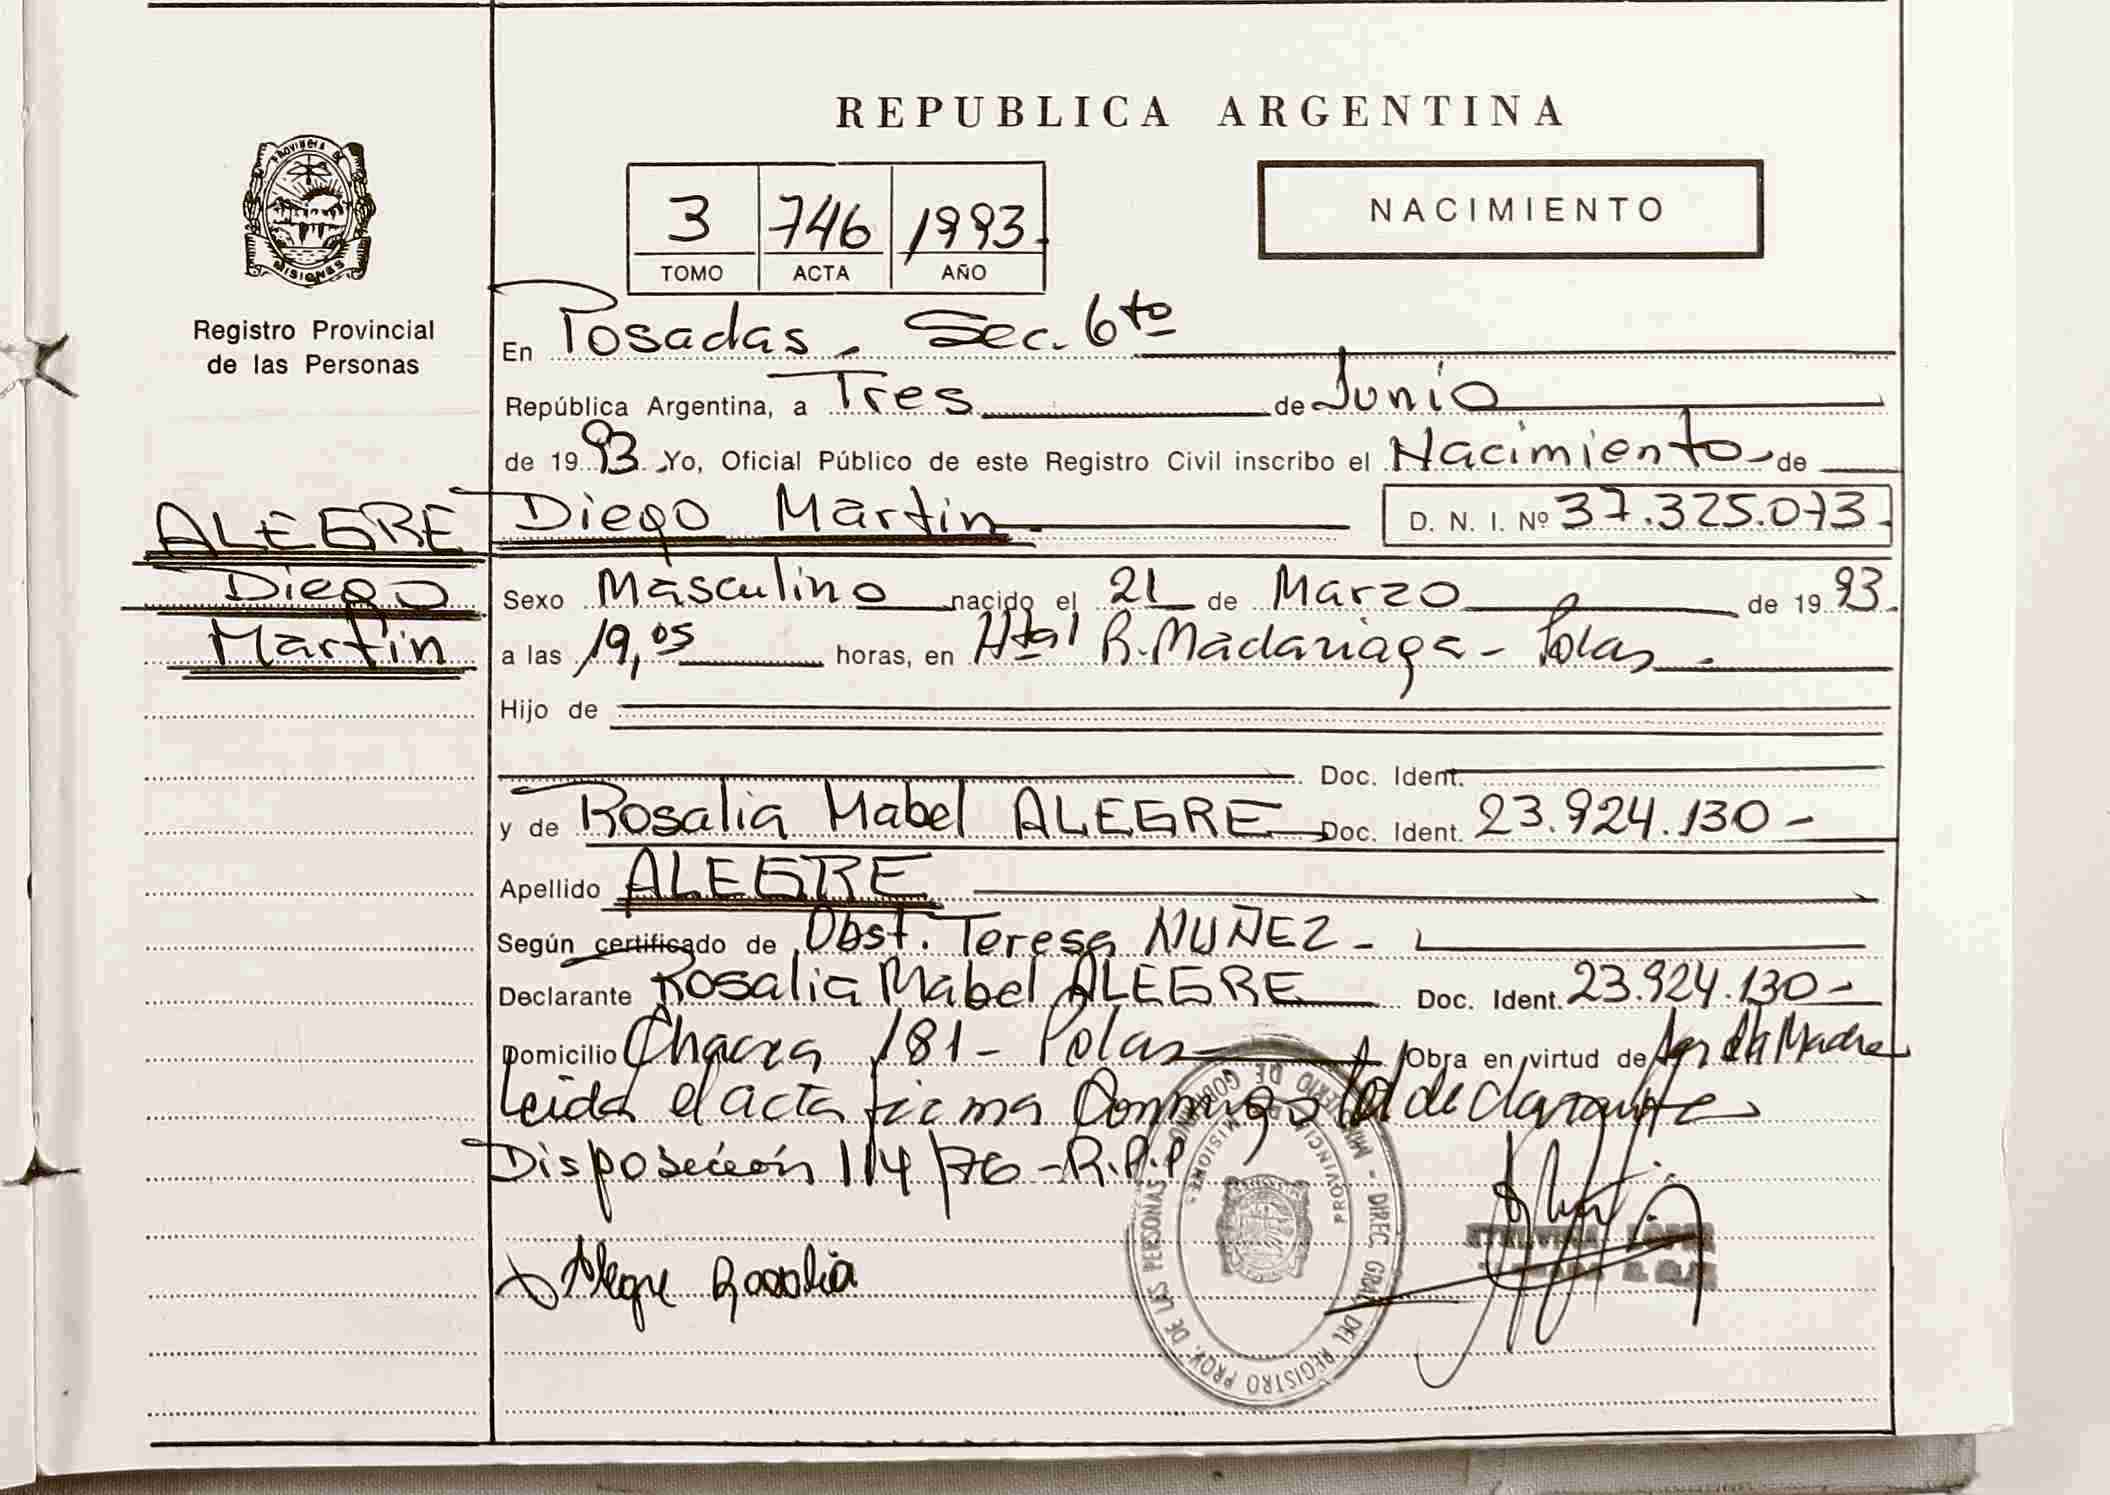 REPUBLICA ARGENTINA
PROVINCIA DE
MISIONES
Registro Provincial
de las Personas
3 746 1993
TOMO ACTA AÑO
NACIMIENTO
En Posadas. Sec. 6to
República Argentina, a Tres de Junio
de 1993. Yo, Oficial Público de este Registro Civil inscribo el Nacimiento de
ALEGRE
Diego
Martin
Diego Martin D. N. I. Nº 37.325.073
Sexo Masculino nacido el 21 de Marzo de 1993
a las 19,05 horas, en Htal R. Madariaga - Pdas.
Hijo de
Doc. Ident.
y de Rosalia Mabel ALEGRE Doc. Ident. 23.924.130-
Apellido ALEGRE
Según certificado de Obst. Teresa NUÑEZ-
Declarante Rosalia Mabel ALEGRE Doc. Ident. 23.924.130-
Domicilio Chacra 181- Pdas Obra en virtud de Madre
Leida el acta firma Conmigo declarante
Disposición 114/76-R.P.P
Alegre Rosalia
MINISTERIO DE GOBIERNO - DIREC. GRAL. DEL REGISTRO PROV. DE LAS PERSONAS
PROVINCIA MISIONES
LOPEZ